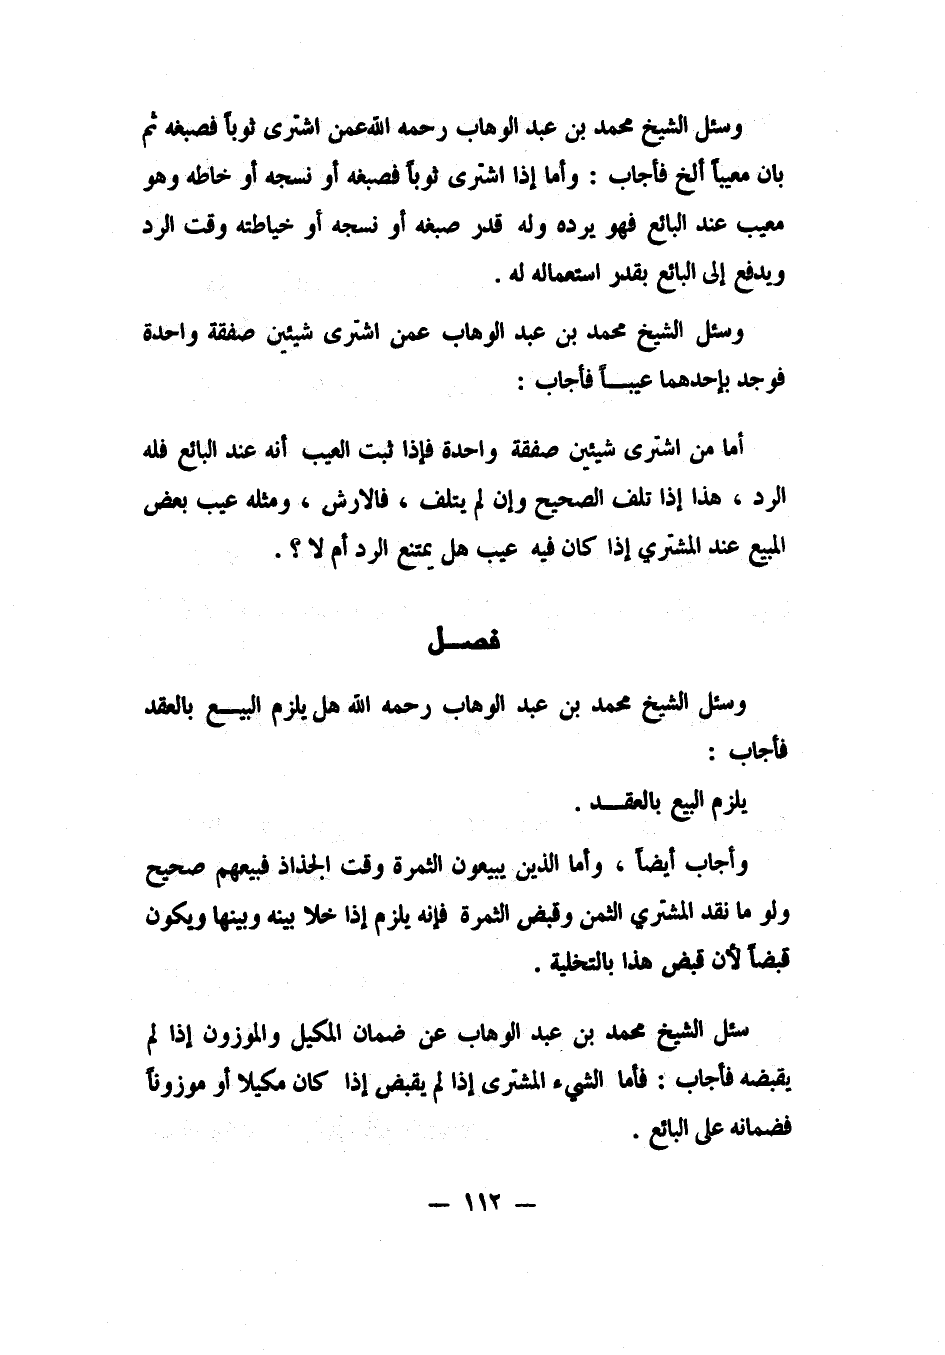 وسئل الشيخ محمد بن عبد الوهاب رحمه الله عمن اشترى ثوباً فصبغه ثم
بان معيباً ألخ فأجاب : وأما إذا اشترى ثوباً فصبغه أو نسجه أو خاطه وهو
معيب عند البائع فهو يرده وله قدر صبغه أو نسجه أو خياطته وقت الرد
ويدفع إلى البائع بقدر استعماله له .
وسئل الشيخ محمد بن عبد الوهاب عمن اشترى شيئين صفقة واحدة
فوجد بإحدهما عيبـــاً فأجاب :
أما من اشترى شيئين صفقة واحدة فإذا ثبت العيب أنه عند البائع فله
الرد ، هذا إذا تلف الصحيح وإن لم يتلف ، فالارش ، ومثله عيب بعض
المبيع عند المشتري إذا كان فيه عيب هل يمتنع الرد أم لا ؟ .
فصـــل
وسئل الشيخ محمد بن عبد الوهاب رحمه الله هل يلزم البيـــع بالعقد
فأجاب :
يلزم البيع بالعقـــد .
وأجاب أيضاً ، وأما الذين يبيعون الثمرة وقت الجذاذ فبيعهم صحيح
ولو ما نقد المشتري الثمن وقبض الثمرة فإنه يلزم إذا خلا بينه وبينها ويكون
قبضاً لأن قبض هذا بالتخلية .
سئل الشيخ محمد بن عبد الوهاب عن ضمان المكيل والموزون إذا لم
يقبضه فأجاب : فأما الشيء المشترى إذا لم يقبض إذا كان مكيلا أو موزوناً
فضمانه على البائع .
— ١١٢ —